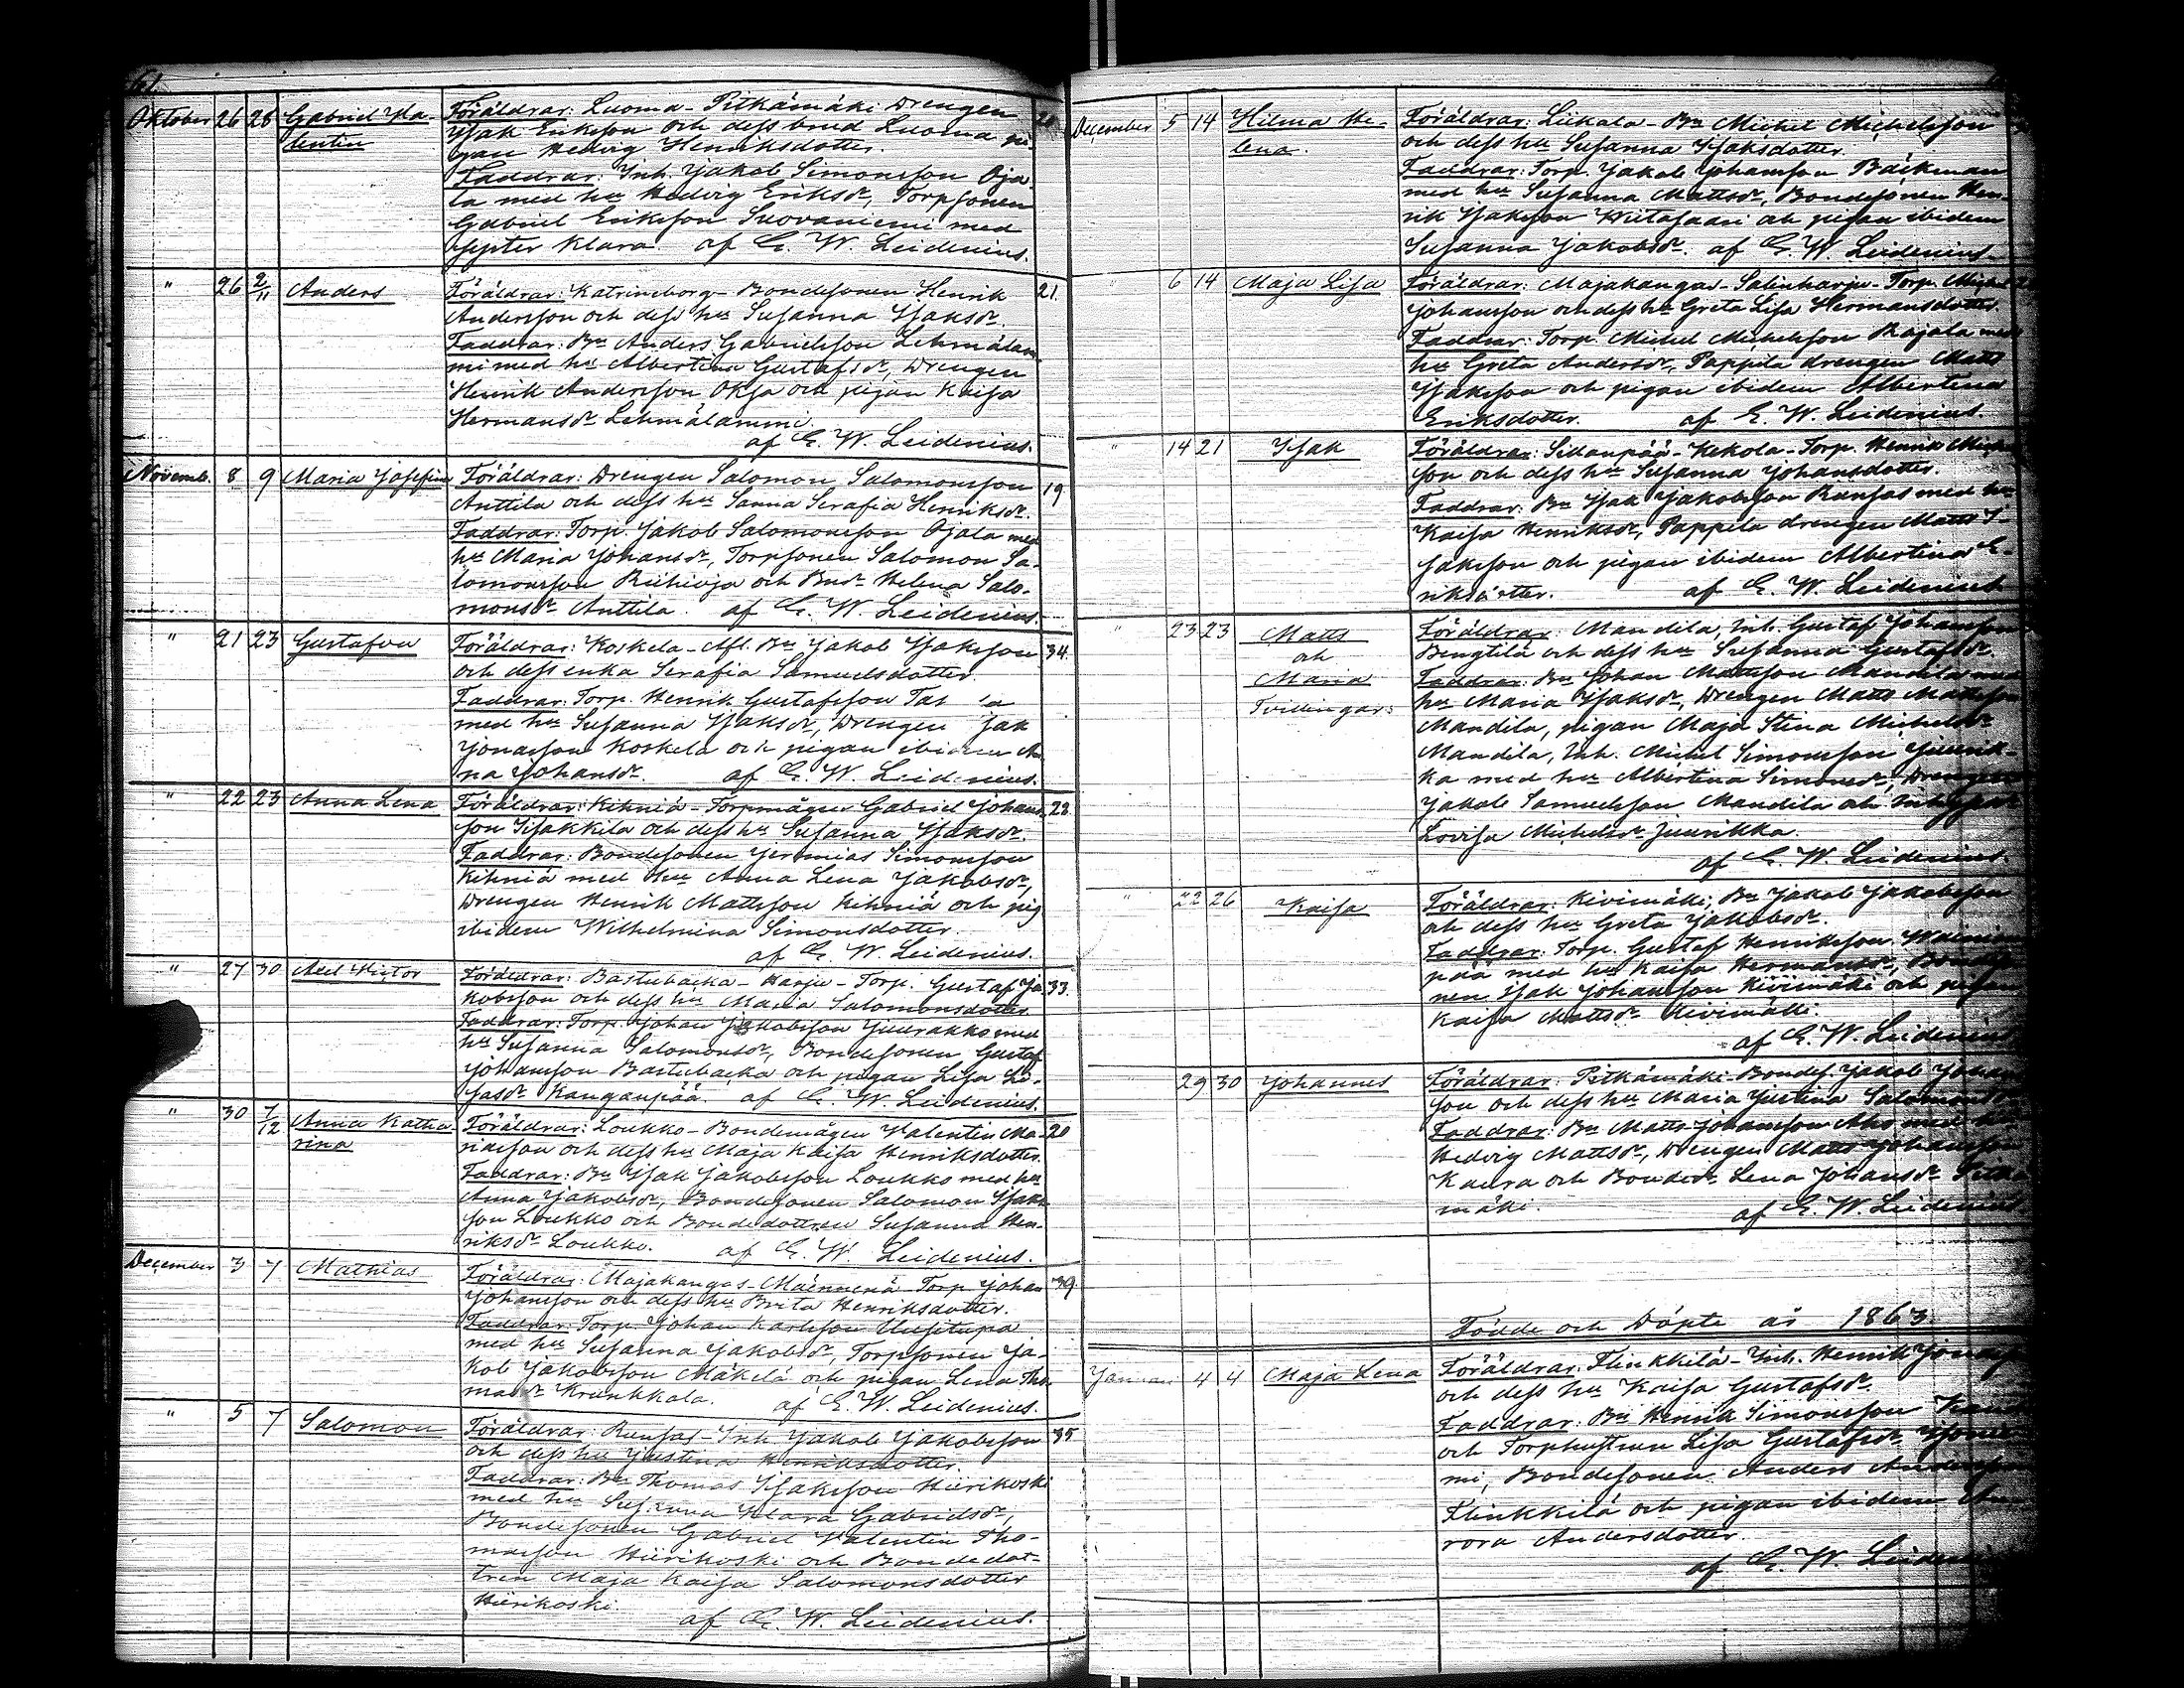 61.
Oktober 26 28 Gabriel Va- Föräldrar: Luoma-Pitkämäki Drengen 20
lentin Isak Eriksson och dess brud Luoma pi-
gan Hedvig Henriksdotter.
Faddrar: Inh. Jakob Simonsson Oja-
la med hu Hedvig Eriksdr, Torpsonen
Gabriel Eriksson Luovaniemi med
syster Klara. af E. W. Leidenius.
" 26 2/11 Anders Föräldrar: Katrineborg-Bondesonen Henrik 21.
Andersson och dess hu Susanna Isaksdr.
Faddrar: Bn Anders Gabrielsson Lehmälam-
mi med hu Albertina Gustafsdr, Drengen
Henrik Andersson Oksa och pigan Kaisa
Hermansdr Lehmälammi.
af E. W. Leidenius.
Novemb. 8 9 Maria Josefina Föräldrar: Drengen Salomon Salomonsson 19
Anttila och dess hu Sanna Serafia Henriksdr.
Faddrar: Torp. Jakob Salomonsson Ojala med
hu Maria Johansdr, Torpsonen Salomon Sa-
lomonsson Riihioja och Bndr Helena Salo-
monsdr Anttila. af E. W. Leidenius.
" 21 23 Gustafva Föräldrar: Koskela-Afl. Bn Jakob Isaksson 34.
och dess enka Serafia Samuelsdotter.
Faddrar: Torp. Henrik Gustafsson
med hu Susanna Isaksdr, Drengen
Jonasson Koskela och pigan ibidem An-
na Johansdr. af E. W. Leidenius.
" 22 23 Anna Lena Föräldrar: Kihniä-Torpmågen Gabriel Johans- 23.
son Iisakkila och dess hu Susanna Isaksdr.
Faddrar: Bondesonen Jeremias Simonsson
Kihniä med hu Anna Lena Jakobsdr,
Drengen Henrik Mattsson Kihniä och pig
ibidem Wilhelmina Simonsdotter.
af E. W. Leidenius.
" 27 30 Axel Victor Föräldrar: Bastubacka-Harju-Torp. Gustaf Ja- 33.
kobsson och dess hu Maria Salomonsdotter.
Faddrar: Torp. Johan Jakobsson Juurakko med
hu Susanna Salomonsdr, Bondesonen Gustaf
Johansson Bastubacka och pigan Lisa
Kangaspää. af E. W. Leidenius.
" 30 7/12 Anna Katha- Föräldrar: Loukko-Bondemågen Valentin Ma- 20
rina och dess hu Maja Kaisa Henriksdotter.
Faddrar: Bn Isak Jakobsson Loukko med hu
Anna Jakobsdr, Bondesonen Salomon Isaks-
son Loukko och Bondedottren Susanna Hen-
riksdr Loukko. af E. W. Leidenius.
December 3 7 Mathias Föräldrar: Majakangas-Mäenneenä-Torp. Johan 39.
Johansson och dess hu Brita Henriksdotter.
Faddrar: Torp. Johan Karlsson Uusitupa
med hu Susanna Jakobsdr, Torpsonen Ja-
kob Jakobsson Mäkelä och pigan Lena Tho-
masdr Krunkkala. af E. W. Leidenius.
" 5 7 Salomon Föräldrar: Runsas-Inh. Jakob Jakobsson 35
och dess hu Justina Henriksdotter.
Faddrar: Bn Thomas Isaksson Hiirikoski
med hu Susanna Klara Gabrielsdr,
Bondesonen Gabriel Valentin Tho-
masson Hiirikoski och Bondedot-
tren Maja Kaisa Salomonsdotter
Hiirikoski.
af E. W. Leidenius.
December 5 14 Hilma He- Föräldrar: Liikala-Bn Michel Michelsson
lena. och dess hu Susanna Isaksdotter.
Faddrar: Torp. Jakob Johansson Bäckman
med hu Susanna Mattsdr, Bondesonen Hen-
rik Isaksson Wiitasaari och pigan ibidem
Susanna Jakobsdr. af E. W. Leidenius.
" 6 14 Maja Lisa Föräldrar: Majakangas-Salinharju-Torp. Michel
Johansson och dess hu Greta Lisa Hermansdotter.
Faddrar: Torp. Michel Michelsson Rajala med
hu Greta Andersdr, Pappila drengen Matts
Isaksson och pigan ibidem Albertina
Eriksdotter. af E. W. Leidenius.
" 14 21 Isak Föräldrar: Sidanpää-Kekola-Torp. Henrik Michels-
son och dess hu Susanna Johansdotter.
Faddrar: Bn Isak Jakobsson Runsas med hu
Kaisa Henriksdr, Pappila drengen Matts I-
saksson och pigan ibidem Albertina E-
riksdotter. af E. W. Leidenius.
" 23 23 Matts Föräldrar: Mandila, Inh. Gustaf Johansson
och Bengtila och dess hu Susanna Gustafsdr.
Maria Faddrar: Bn Johan Mattsson Mandila med
Tvillingar: hu Maria Isaksdr, Drengen Matts Mattsson
Mandila, pigan Maja Stina Michelsdr
Mandila, Inh. Michel Simonsson Juurik-
ka med hu Albertina Simonsdr, Drengen
Jakob Samuelsson Mandila och
Lovisa Michelsdr Juurikka.
af E. W. Leidenius.
" 22 26 Kaisa Föräldrar: Kivimäki, Bn Jakob Jakobsson
och dess hu Greta Jakobsdr.
Faddrar: Torp. Gustaf Henriksson
pää med hu Kaisa Hermansdr, Bondeso-
nen Isak Johansson Kivimäki och pigan
Kaisa Mattsdr Kivimäki.
af E. W. Leidenius.
" 29 30 Johannes Föräldrar: Pitkämäki-Bondes. Jakob Johans-
son och dess hu Maria Justina Salomonsdr
Faddrar: Bn Matts Johansson Aho med hu
Hedvig Mattsdr, Drengen Matts Johansson
Kaura och Bondedr Lena Johansdr Pitkä-
mäki. af E. W. Leidenius.
Födde och Döpte år 1863.
Januari 4 4 Maja Lena Föräldrar: Flinkkilä-Inh. Henrik
och dess hu Kaisa Gustafsdr.
Faddrar: Bn Henrik Simonsson
och Torphustrun Lisa Gustafsdr
mi, Bondesonen Anders Andersson
Flinkkilä och pigan ibidem Au-
rora Andersdotter.
af E. W. Leidenius